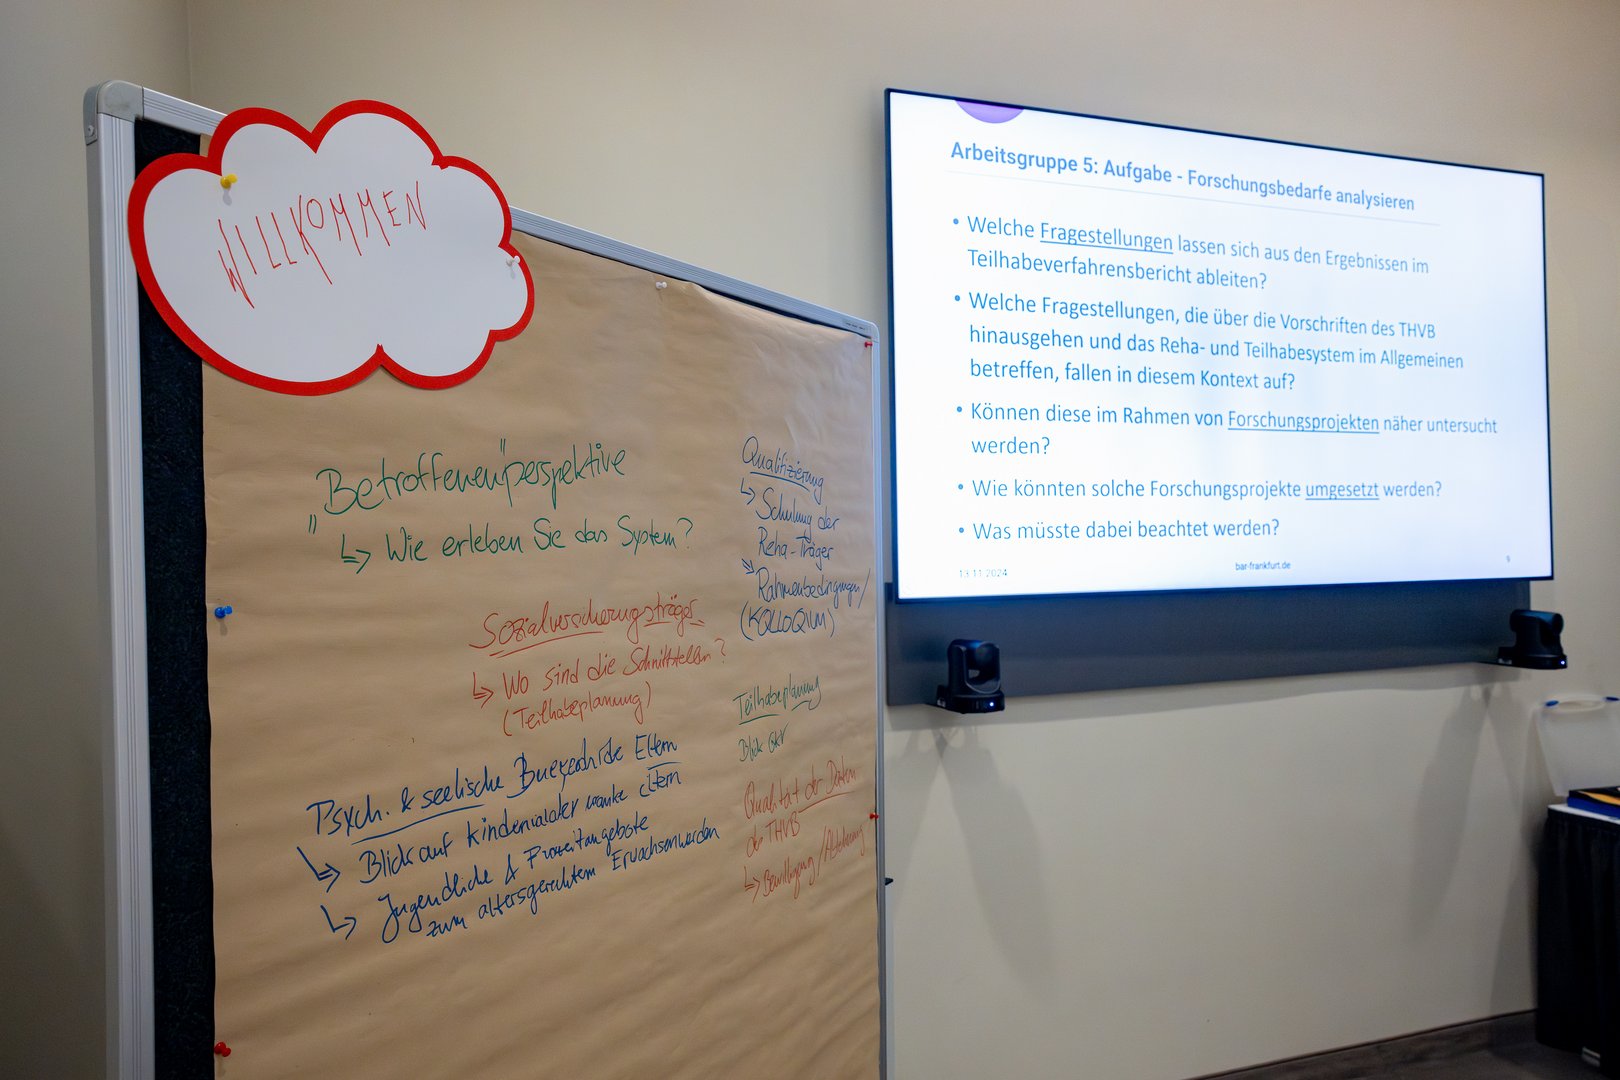 WILLKOMMEN
„Betroffenen"perspektive
↳ Wie erleben Sie das System?
Sozialversicherungsträger
↳ Wo sind die Schnittstellen?
(Teilhabeplanung)
Psych. & seelische Eltern
↳ Blick auf kranke Eltern
↳ Jugendliche &
zum altersgerechtem Erwachsenwerden
Qualifizierung
↳ Schulung der
Reha-Träger
Rahmenbedingungen/
(KOLLOQIUM)
Teilhabeplanung
Blick
Qualität der Daten
des THVB
↳ Bewilligung/Ablehnung
Arbeitsgruppe 5: Aufgabe - Forschungsbedarfe analysieren
• Welche Fragestellungen lassen sich aus den Ergebnissen im
Teilhabeverfahrensbericht ableiten?
• Welche Fragestellungen, die über die Vorschriften des THVB
hinausgehen und das Reha- und Teilhabesystem im Allgemeinen
betreffen, fallen in diesem Kontext auf?
• Können diese im Rahmen von Forschungsprojekten näher untersucht
werden?
• Wie könnten solche Forschungsprojekte umgesetzt werden?
• Was müsste dabei beachtet werden?
13.11.2024
bar-frankfurt.de
9